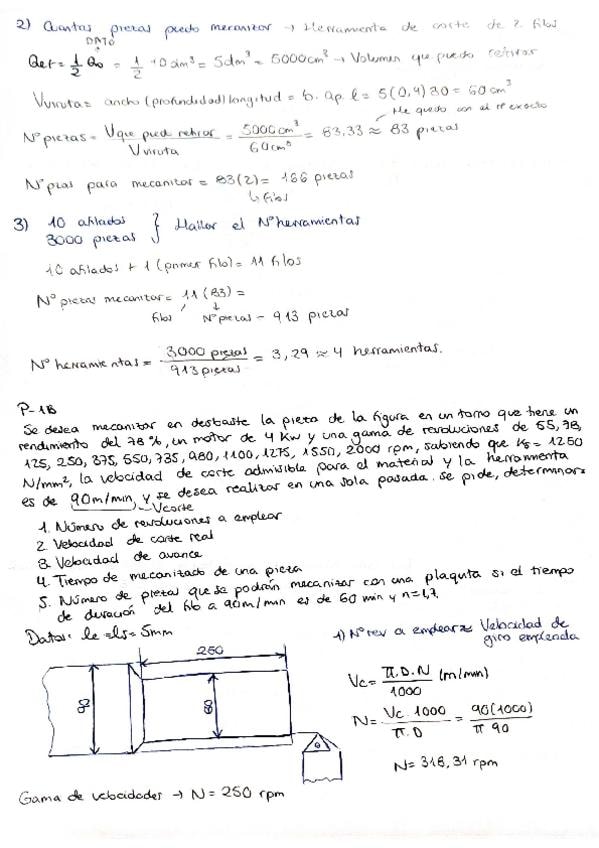 2) Cuantas piezas puedo mecanizar → Herramienta de corte de 2 filos
DATO
Qef = 1/2 Q₀ = 1/2 10 dm³ = 5dm³ = 5000cm³ → Volumen que puedo retirar
Vviruta = ancho (profundidad) longitud = b. ap. l = 5(0,4)30 = 60 cm³
Me quedo con el nº exacto
Nº piezas = V que pued retirar / V viruta = 5000 cm³ / 60 cm³ = 83.33 ≈ 83 piezas
Nº pzas para mecanizar = 83(2) = 166 piezas
↳ filos
3) 10 afilados
3000 piezas } Hallar el Nº herramientas
10 afilados + 1 (primer filo) = 11 filos
Nº piezas mecanizar = 11 (83) =
filos Nº piezas = 913 piezas
Nº herramientas = 3.000 piezas / 913 piezas = 3,29 ≈ 4 herramientas.
P-1B
Se desea mecanizar en desbaste la pieza de la figura en un torno que tiene un
rendimiento del 78%, un motor de 4 Kw y una gama de revoluciones de 55, 78,
125, 250, 375, 550, 735, 980, 1100, 1275, 1550, 2000 rpm, sabiendo que Ks = 1250
N/mm², la velocidad de corte admisible para el material y la herramienta
es de 90m/min, y se desea realizar en una sola pasada. Se pide, determinar:
Vcorte
1. Número de revoluciones a emplear
2. Velocidad de corte real
3. Velocidad de avance
4. Tiempo de mecanizado de una pieza
5. Número de piezas que se podrán mecanizar con una plaquita si el tiempo
de duración del filo a 90m/min es de 60 min y n=1,7
Datos: le = ls = 5mm
250
90
80
1) Nº rev a emplear = Velocidad de
giro empleada
Vc = π.D.N / 1000 (m/min)
N = Vc . 1000 / π.D = 90(1000) / π 90
N = 318,31 rpm
Gama de velocidades → N = 250 rpm